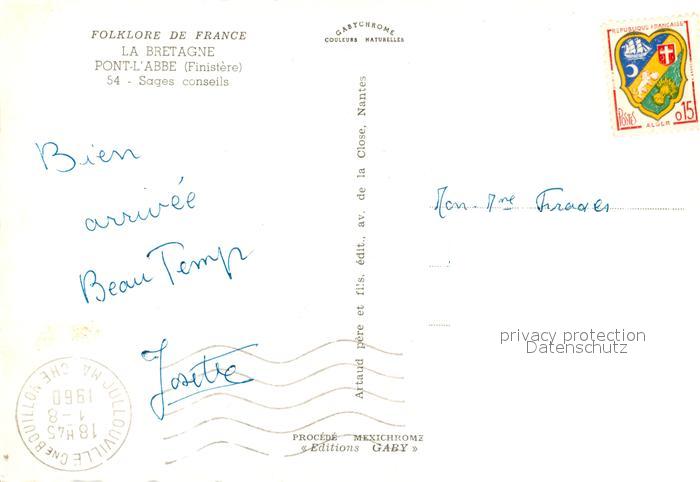 FOLKLORE DE FRANCE
LA BRETAGNE
PONT-L'ABBÉ (Finistère)
54 - Sages conseils
GABYCHROME
COULEURS NATURELLES
REPUBLIQUE FRANÇAISE
POSTES
ALGER
0,15
Bien
arrivée
Beau Temp
Josette
Mon. Mme
Artaud père et fils, édit., av. de la Close, Nantes
privacy protection
Datenschutz
JULLOUVILLE CNE BOUILLON MANCHE
18H45
1-8
1960
PROCÉDÉ MEXICHROME
«Editions GABY»